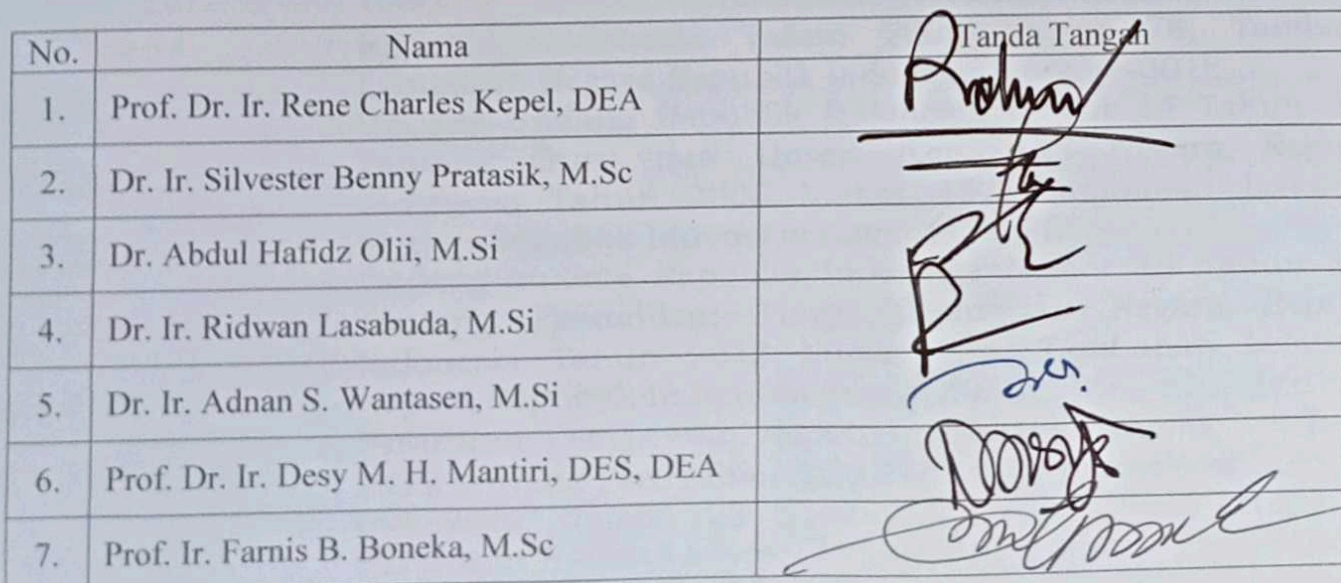 No. Nama Tanda Tangan
1. Prof. Dr. Ir. Rene Charles Kepel, DEA
2. Dr. Ir. Silvester Benny Pratasik, M.Sc
3. Dr. Abdul Hafidz Olii, M.Si
4. Dr. Ir. Ridwan Lasabuda, M.Si
5. Dr. Ir. Adnan S. Wantasen, M.Si
6. Prof. Dr. Ir. Desy M. H. Mantiri, DES, DEA
7. Prof. Ir. Farnis B. Boneka, M.Sc